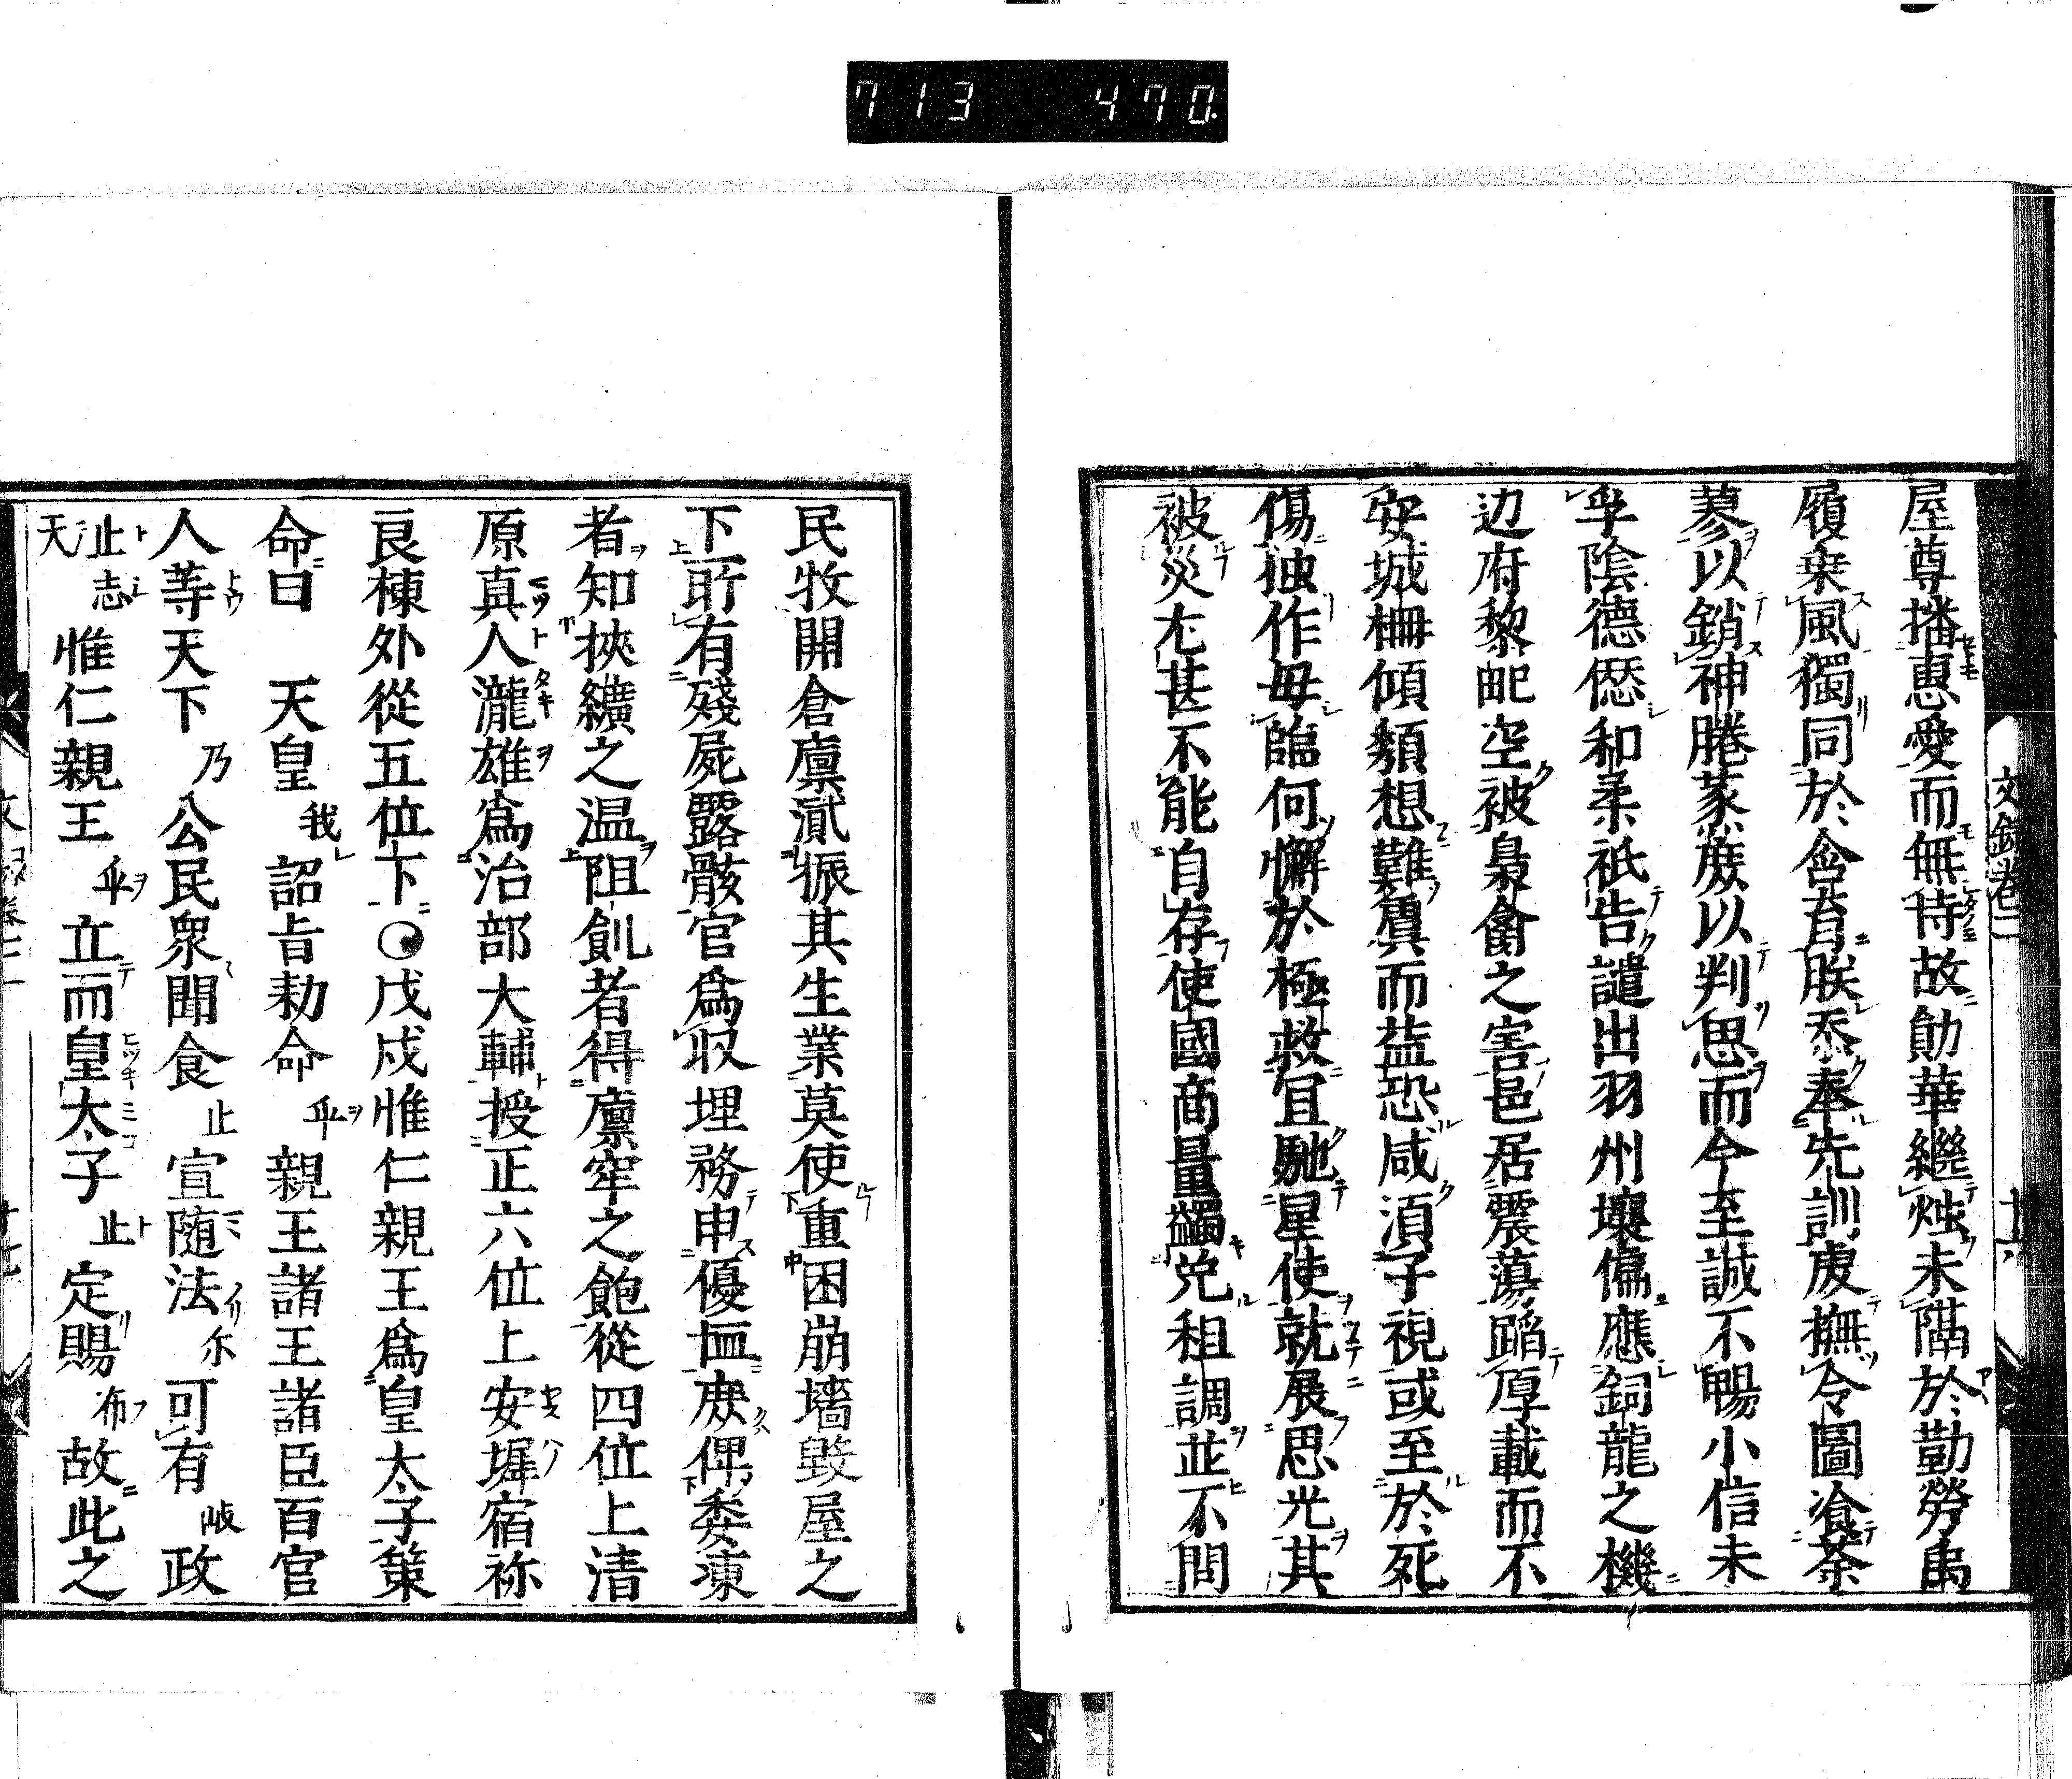 713 470.
屋尊播惠愛而無待故勛華繼燭未隔於勤勞禹
履乗風獨同於含育朕忝奉先訓虔撫令圖飡荼
蓼以銷神腃蒙蔑以判思而今至誠不暢小信未
孚陰德僁和柔祇告譴出羽州壤偏應銅龍之機
辺府黎甿空被梟禽之害邑居震蕩蹈厚載而不
安城柵傾頽想難糞而益恐咸須子視或至於死
傷独作毋臨何懈於極救宜馳星使就展思光其
被災尤甚不能自存使國商量蠲免租調並不間
文録卷二
民牧開倉廪濆振其生業莫使重困崩墻毀屋之
下所有殘屍露骸官爲収埋務申優恤庶俾委凍
者知挾纊之温阻飢者得廪牢之飽從四位上清
原真人瀧雄爲治部大輔授正六位上安墀宿祢
良棟外從五位下○戊戌惟仁親王爲皇太子策
命曰 天皇我詔旨勅命乎親王諸王諸臣百官
人等天下乃公民衆聞食止宣随法尓可有岐政
止志天惟仁親王乎立而皇太子止定賜布故此之